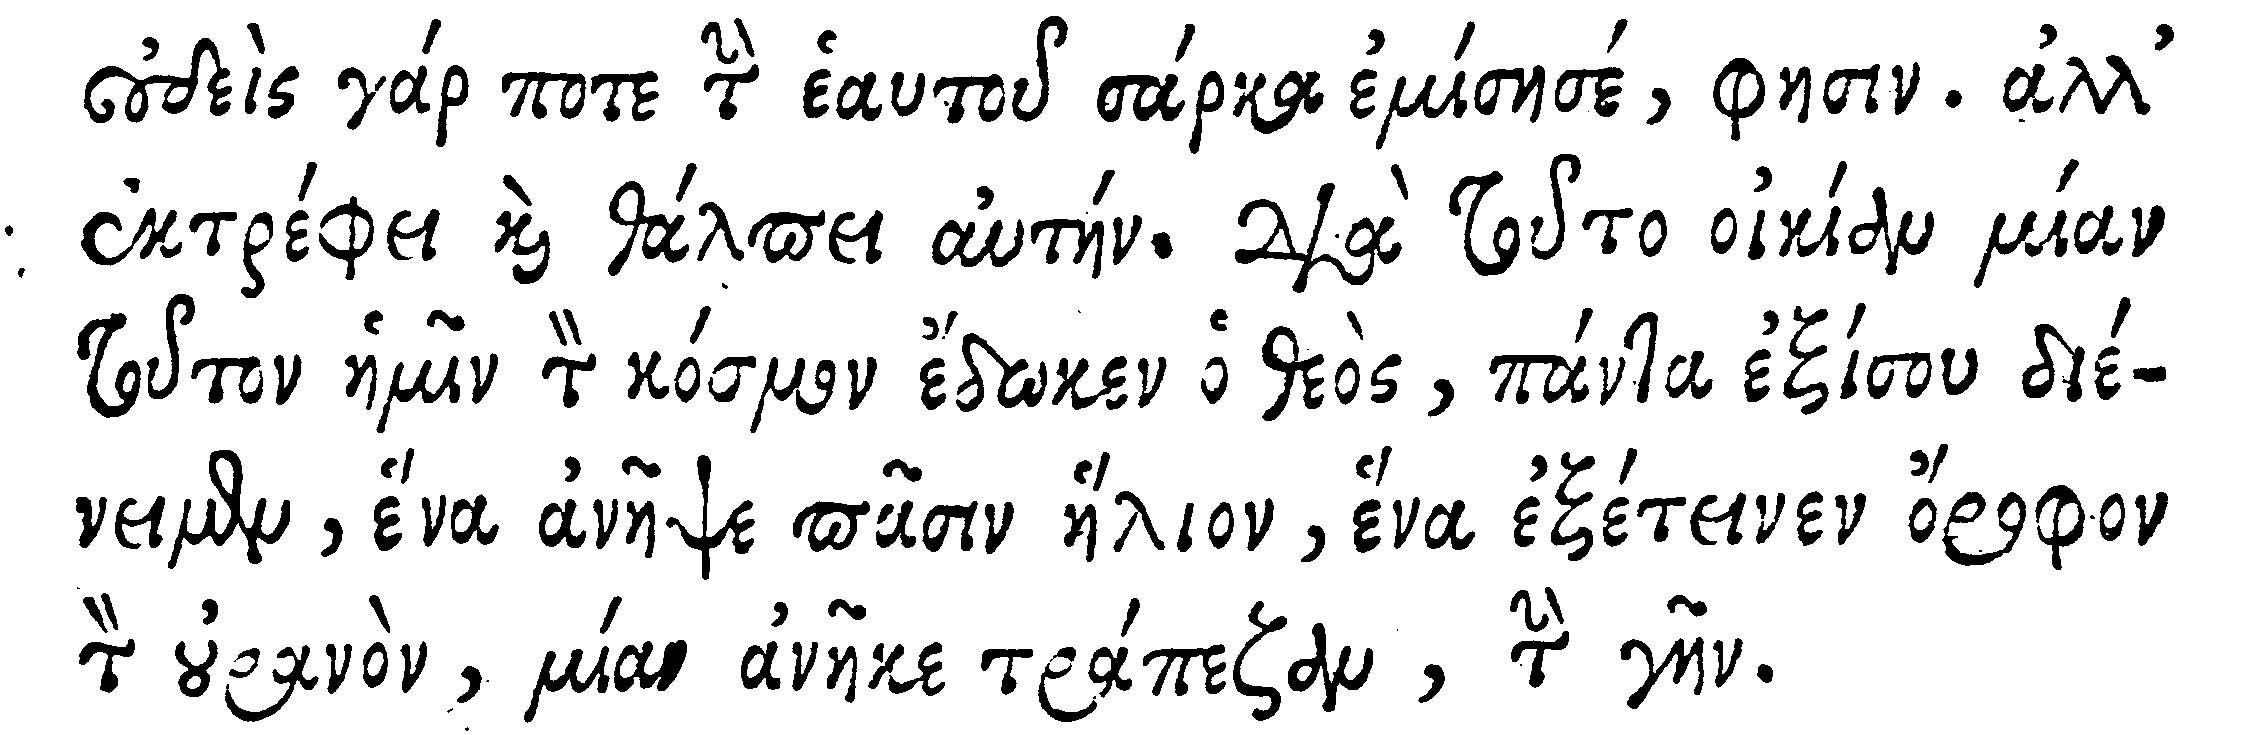 οὐδεὶς γάρ ποτε τὴν ἑαυτοῦ σάρκα ἐμίσησέ, φησιν. ἀλλ᾽
ἐκτρέφει καὶ θάλπει αὐτήν. Διὰ τοῦτο οἰκίαν μίαν
τοῦτον ἡμῖν τὸν κόσμον ἔδωκεν ὁ θεὸς, πάντα ἐξίσου διέ-
νειμεν, ἕνα ἀνῆψε πᾶσιν ἥλιον, ἕνα ἐξέτεινεν ὄροφον
τὸν οὐρανὸν, μίαν ἀνῆκε τράπεζαν, τὴν γῆν.